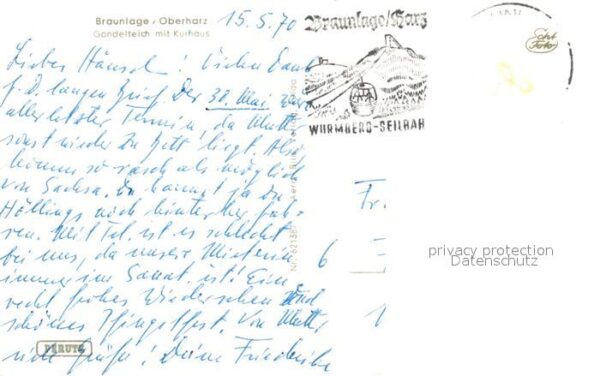 Braunlage / Oberharz
Gondelteich mit Kurhaus
15.5.70
Braunlage/Harz
WURMBERG-SEILBAH
Echt
Foto
Liebes Hänsel! Vielen Dank
f. D. langen Brief. Der 30. Mai wäre
allerletzter Termin, da Mutti
sonst wieder zu Bett liegt. Also
komm so rasch als möglich
von Sachsa. Du kannst ja zu
Höllings noch hinterher fah-
ren. Mit Tel. ist es schlecht
bei uns, da unsere Mieterin
immer im Sanat. ist! Ein
recht frohes Wiedersehen und
schönes Pfingstfest. Von Mutti
viele Grüße! Deine Friederike
Fr.
6
PERUTZ
privacy protection
Datenschutz